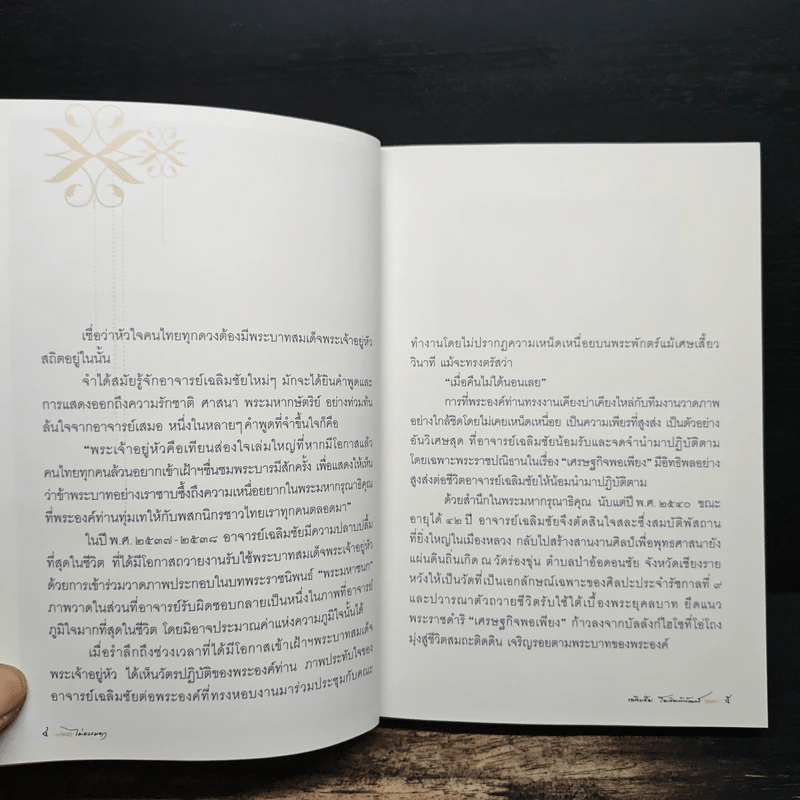 เชื่อว่าหัวใจคนไทยทุกดวงต้องมีพระบาทสมเด็จพระเจ้าอยู่หัว
สถิตอยู่ในนั้น
จำได้สมัยรู้จักอาจารย์เฉลิมชัยใหม่ๆ มักจะได้ยินคำพูดและ
การแสดงออกถึงความรักชาติ ศาสนา พระมหากษัตริย์ อย่างท่วมท้น
ล้นใจจากอาจารย์เสมอ หนึ่งในหลายๆ คำพูดที่จำขึ้นใจก็คือ
“พระเจ้าอยู่หัวคือเทียนส่องใจเล่มใหญ่ที่หากมีโอกาสแล้ว
คนไทยทุกคนล้วนอยากเข้าเฝ้าฯชื่นชมพระบารมีสักครั้ง เพื่อแสดงให้เห็น
ว่าข้าพระบาทอย่างเราซาบซึ้งถึงความเหนื่อยยากในพระมหากรุณาธิคุณ
ที่พระองค์ท่านทุ่มเทให้กับพสกนิกรชาวไทยเราทุกคนตลอดมา”
ในปี พ.ศ. ๒๕๓๗-๒๕๓๘ อาจารย์เฉลิมชัยมีความปลาบปลื้ม
ที่สุดในชีวิต ที่ได้มีโอกาสถวายงานรับใช้พระบาทสมเด็จพระเจ้าอยู่หัว
ด้วยการเข้าร่วมวาดภาพประกอบในบทพระราชนิพนธ์ “พระมหาชนก”
ภาพวาดในส่วนที่อาจารย์รับผิดชอบกลายเป็นหนึ่งในภาพที่อาจารย์
ภูมิใจมากที่สุดในชีวิต โดยมิอาจประมาณค่าแห่งความภูมิใจนั้นได้
เมื่อรำลึกถึงช่วงเวลาที่ได้มีโอกาสเข้าเฝ้าฯพระบาทสมเด็จ
พระเจ้าอยู่หัว ได้เห็นวัตรปฏิบัติของพระองค์ท่าน ภาพประทับใจของ
อาจารย์เฉลิมชัยต่อพระองค์ที่ทรงหอบงานมาร่วมประชุมกับคณะ
๔ ไม่ธรรมดา
ทำงานโดยไม่ปรากฏความเหน็ดเหนื่อยบนพระพักตร์แม้เศษเสี้ยว
วินาที แม้จะทรงตรัสว่า
“เมื่อคืนไม่ได้นอนเลย”
การที่พระองค์ท่านทรงงานเคียงบ่าเคียงไหล่กับทีมงานวาดภาพ
อย่างใกล้ชิดโดยไม่เคยเหน็ดเหนื่อย เป็นความเพียรที่สูงส่ง เป็นตัวอย่าง
อันวิเศษสุด ที่อาจารย์เฉลิมชัยน้อมรับและจดจำนำมาปฏิบัติตาม
โดยเฉพาะพระราชปณิธานในเรื่อง “เศรษฐกิจพอเพียง” มีอิทธิพลอย่าง
สูงส่งต่อชีวิตอาจารย์เฉลิมชัยให้น้อมนำมาปฏิบัติตาม
ด้วยสำนึกในพระมหากรุณาธิคุณ นับแต่ปี พ.ศ. ๒๕๔๐ ขณะ
อายุได้ ๔๒ ปี อาจารย์เฉลิมชัยจึงตัดสินใจสละซึ่งสมบัติพัสถาน
ที่ยิ่งใหญ่ในเมืองหลวง กลับไปสร้างสานงานศิลป์เพื่อพุทธศาสนายัง
แผ่นดินถิ่นเกิด ณ วัดร่องขุ่น ตำบลป่าอ้อดอนชัย จังหวัดเชียงราย
หวังให้เป็นวัดที่เป็นเอกลักษณ์เฉพาะของศิลปะประจำรัชกาลที่ ๙
และปวารณาตัวถวายชีวิตรับใช้ใต้เบื้องพระยุคลบาท ยึดแนว
พระราชดำริ “เศรษฐกิจพอเพียง” ก้าวลงจากบัลลังก์ไฮโซที่โอ่โถง
มุ่งสู่ชีวิตสมถะติดดิน เจริญรอยตามพระบาทของพระองค์
เฉลิมชัย โฆษิตพิพัฒน์ ๕